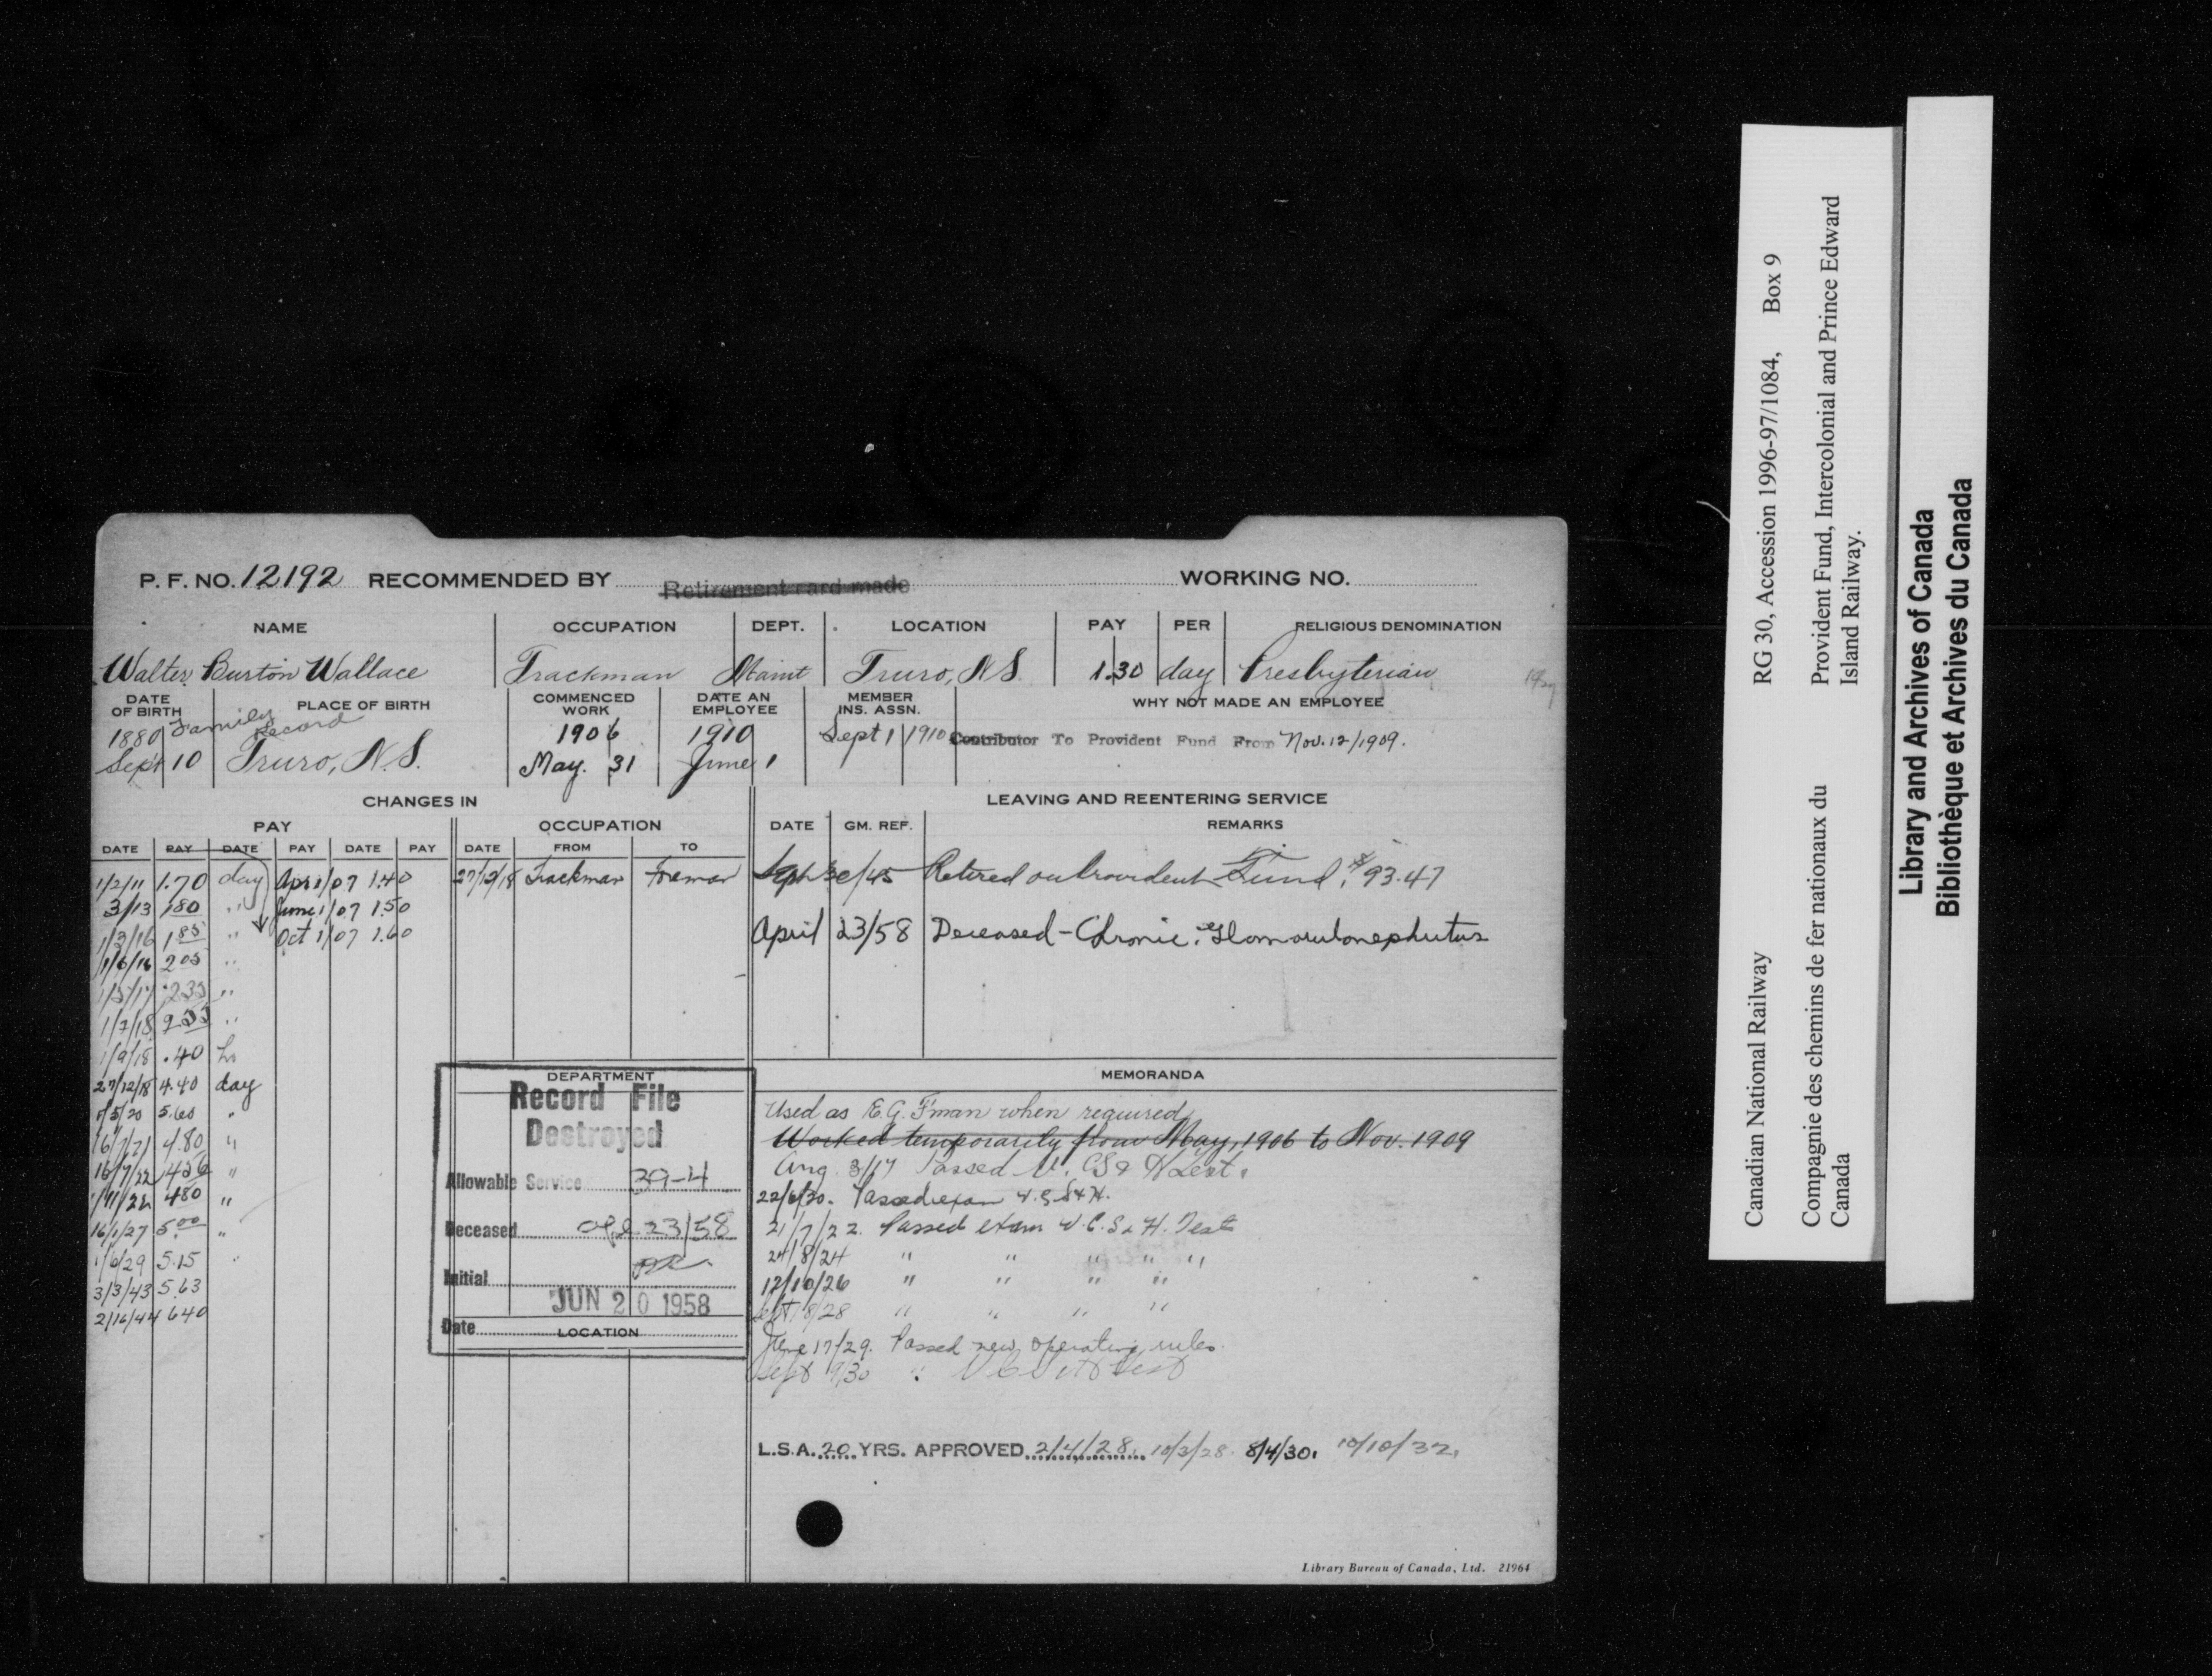 P. F. NO. 12192 RECOMMENDED BY Retirement card made WORKING NO.
NAME OCCUPATION DEPT. LOCATION PAY PER RELIGIOUS DENOMINATION
Walter Burton Wallace Trackman Maint Truro, N.S. 1.30 day Presbyterian
DATE OF BIRTH PLACE OF BIRTH COMMENCED WORK DATE AN EMPLOYEE MEMBER INS. ASSN. WHY NOT MADE AN EMPLOYEE
1880 Family Record 1906 1910 Sept 1 1910 Contributor To Provident Fund From Nov. 12/1909.
Sept 10 Truro, N.S. May. 31 June 1
CHANGES IN LEAVING AND REENTERING SERVICE
PAY OCCUPATION DATE GM. REF. REMARKS
DATE PAY DATE PAY DATE PAY DATE FROM TO
1/2/11 1.70 day Apr 1/07 1.40 27/12/18 Trackman Foreman Sept 30/45 Retired on Provident Fund, $93.47
3/13 180 " June 1/07 1.50
1/3/16 1 85 " Oct 1/07 1.60 April 23/58 Deceased - Chronic Glomorulonephritus
1/6/16 2 05 "
1/5/17 2 35 "
1/7/18 2 55 "
1/9/18 .40 hr
27/12/18 4.40 day
1/5/20 5.60 "
16/7/21 4.80 "
16/7/22 4 56 "
1/11/22 480 "
16/1/27 5.00 "
1/6/29 5.15 "
3/3/43 5.63
2/16/44 640
DEPARTMENT
Record File
Destroyed
Allowable Service 39-4
Deceased Apl. 23/58
Initial
JUN 20 1958
Date
LOCATION
MEMORANDA
Used as E.G. F'man when required
Worked temporarily from May, 1906 to Nov. 1909
Aug. 3/17 Passed V. C S & H Test.
22/6/20. Passed exam V.C.S & H.
21/7/22. Passed exam V.C.S & H. Test
24/8/24 " " " " "
12/10/26 " " " "
Sept 18/28 " " " "
June 17/29. Passed new operating rules.
Sept 9/30 " V C S & H Test
L.S.A. 20 YRS. APPROVED 2/4/28. 10/3/28. 8/4/30. 10/10/32.
Library Bureau of Canada, Ltd. 21964
Canadian National Railway RG 30, Accession 1996-97/1084, Box 9
Compagnie des chemins de fer nationaux du Canada
Provident Fund, Intercolonial and Prince Edward Island Railway.
Library and Archives of Canada
Bibliothèque et Archives du Canada